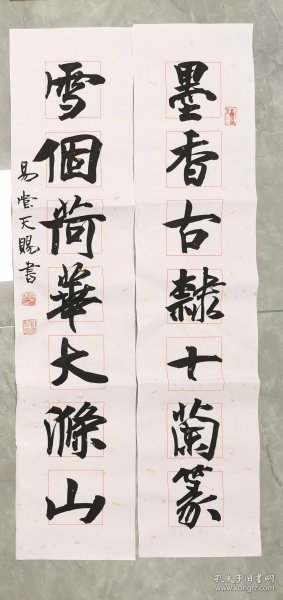 墨香古隸十蘭篆
雪個荷華大滌山
易 天賜書
孔夫子旧书网